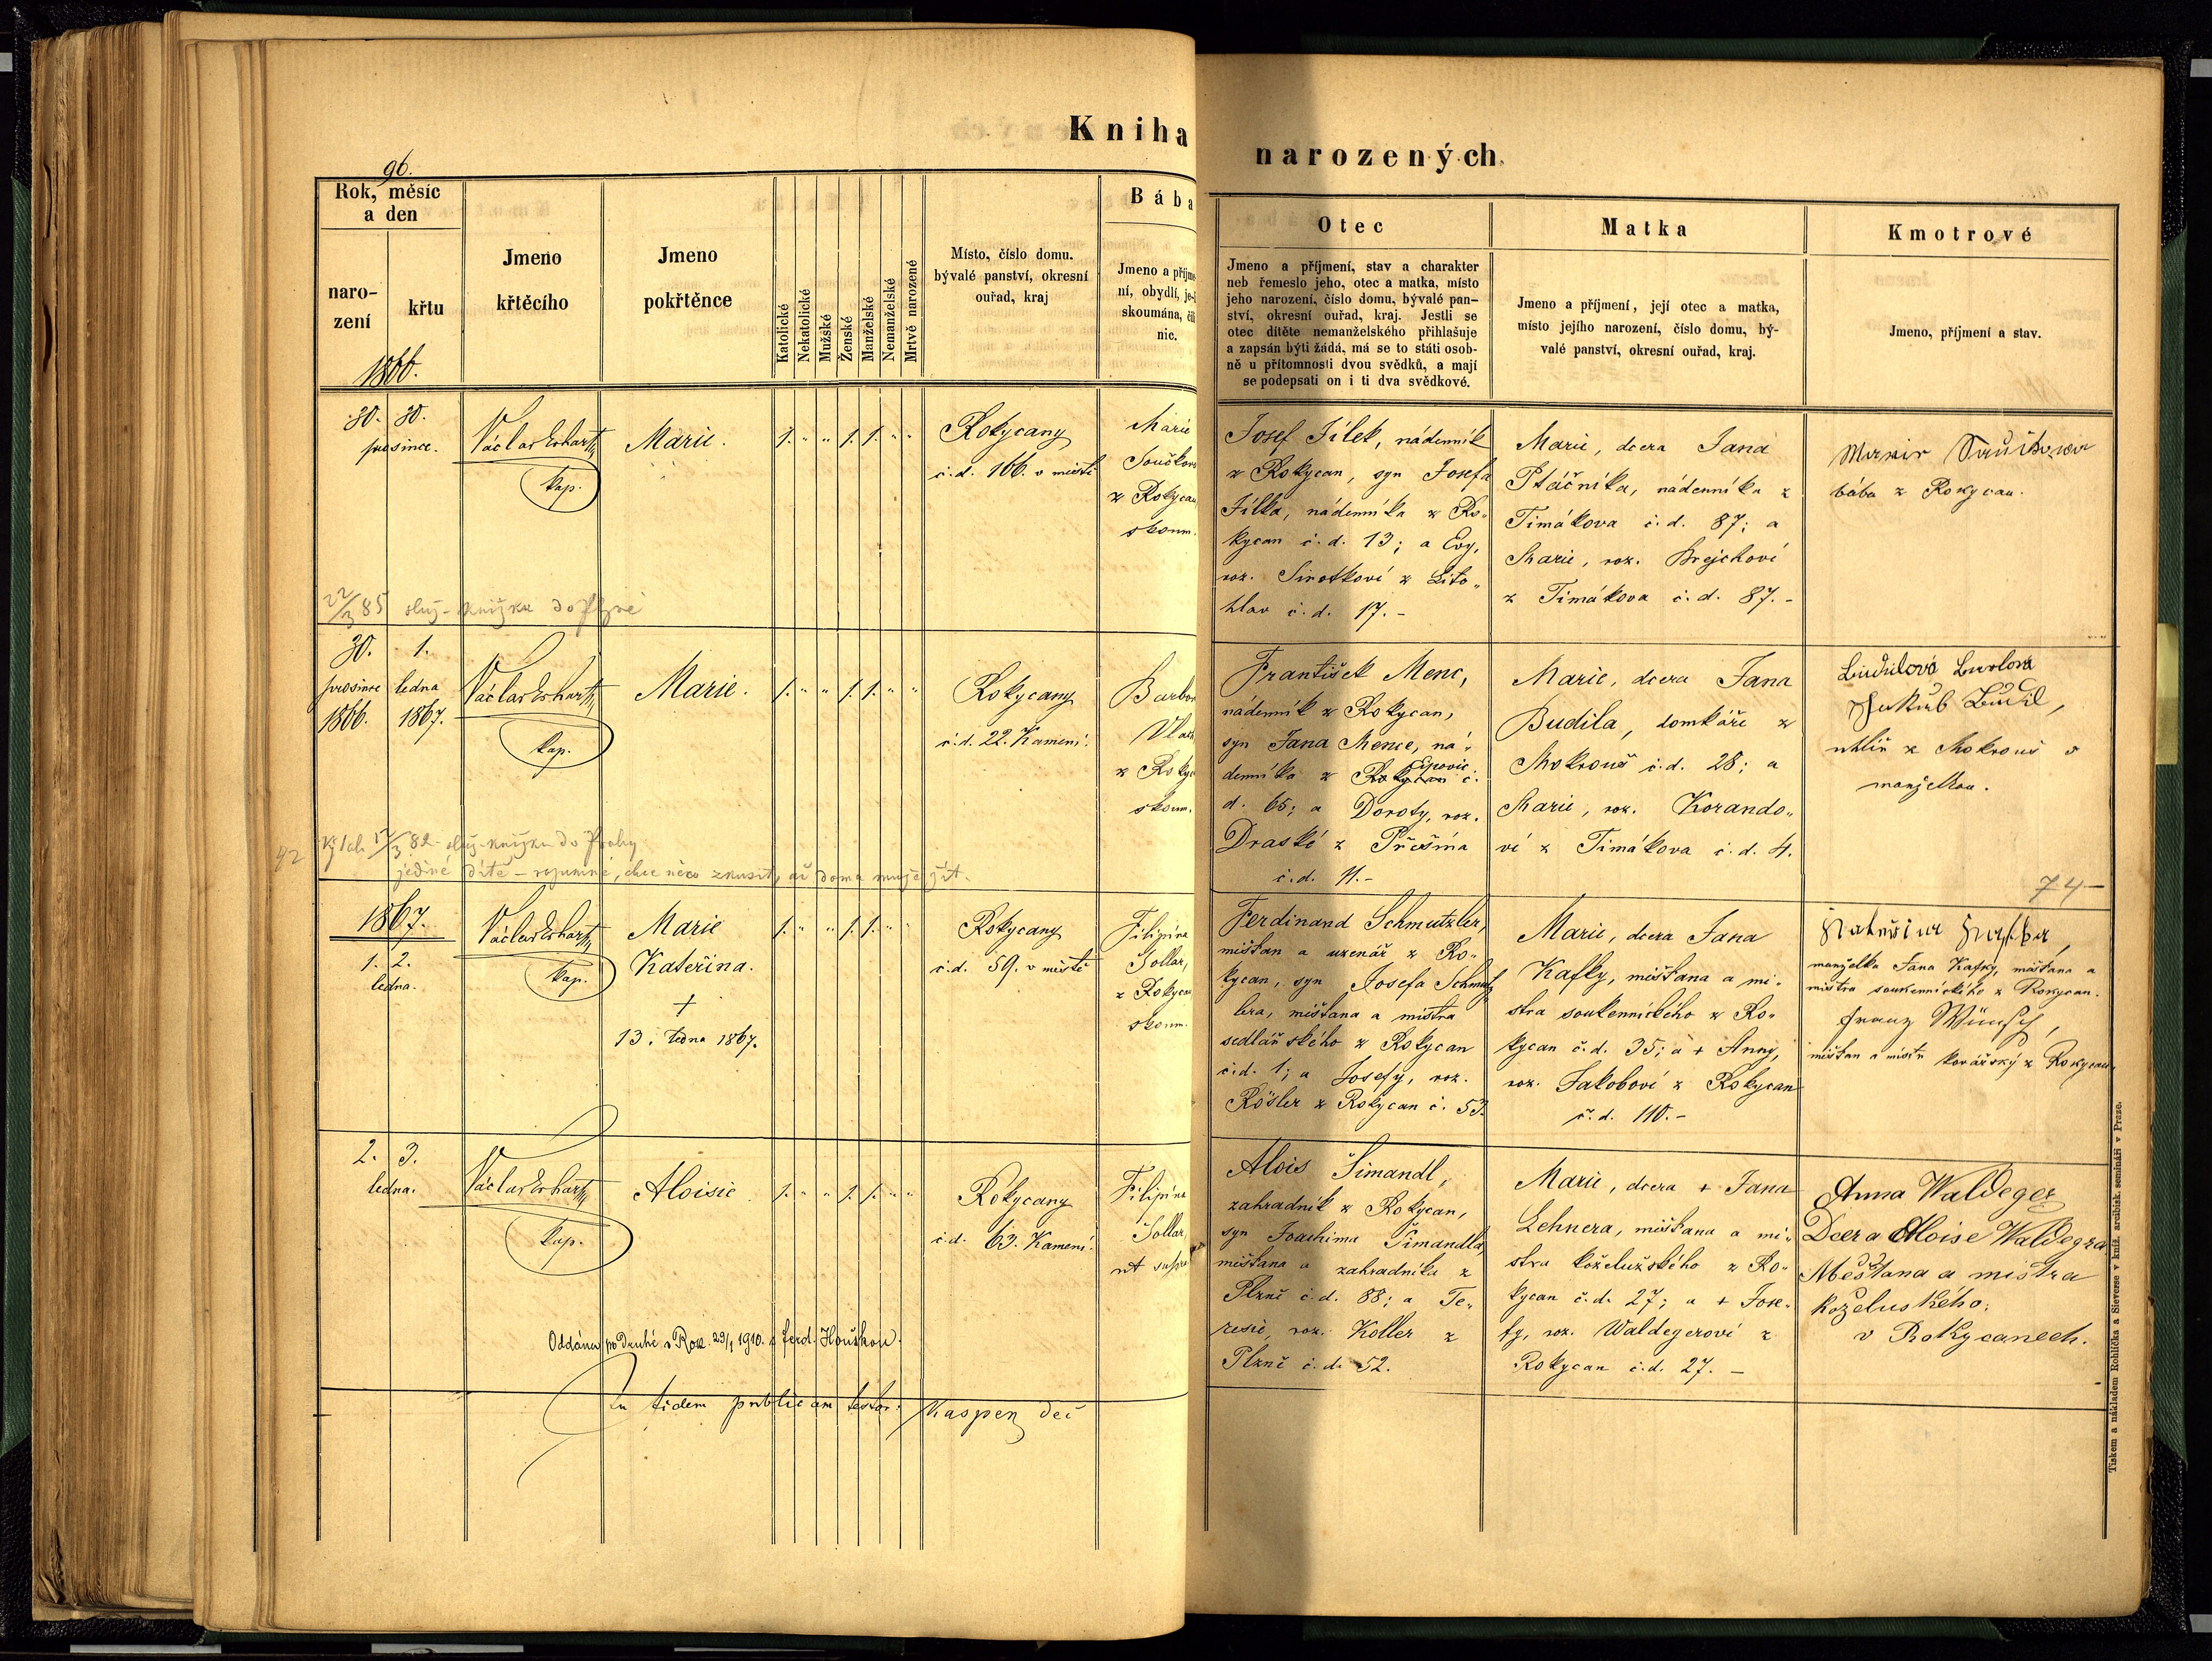 Kniha
narozených.
96.
Rok, měsíc
a den
naro-
zení
křtu
1866.
Jmeno
křtěcího
Jmeno
pokřtěnce
Katolické
Nekatolické
Mužské
Ženské
Manželské
Nemanželské
Mrtvě narozené
Místo, číslo domu.
bývalé panství, okresní
ouřad, kraj
Bába
Jmeno a příjme-
ní, obydlí, je-li
skoumána, čili
nic.
Otec
Jmeno a příjmení, stav a charakter
neb řemeslo jeho, otec a matka, místo
jeho narození, číslo domu, bývalé pan-
ství, okresní ouřad, kraj. Jestli se
otec dítěte nemanželského přihlašuje
a zapsán býti žádá, má se to státi osob-
ně u přítomnosti dvou svědků, a mají
se podepsati on i ti dva svědkové.
Matka
Jmeno a příjmení, její otec a matka,
místo jejího narození, číslo domu, bý-
valé panství, okresní ouřad, kraj.
Kmotrové
Jmeno, příjmení a stav.
30. 30.
prosince.
Václav Erhart
kap.
Marie.
1. " " 1. 1. " "
Rokycany
č. d. 166. v městě
Marie
Součkov
z Rokycan
skoum.
Josef Jílek, nádenník
z Rokycan, syn Josefa
Jílka, nádenníka z Ro-
kycan č. d. 13; a Evy,
roz. Sirotkové z Lito-
hlav č. d. 17. -
Marie, dcera Jana
Ptáčníka, nádenníka z
Timákova č. d. 87; a
Marie, roz. Brejchové
z Timákova č. d. 87. -
bába z Rokycan.
22/3 85 služ-knížku do Plzně
30. 1.
prosince ledna
1866. 1867.
Václav Erhart
kap.
Marie.
1. " " 1. 1. " "
Rokycany
č. d. 22. Kamení.
Barbor
Vlach
z Rokyc
skoum.
František Menc,
nádenník z Rokycan,
syn Jana Mence, ná-
denníka z Rokycan č.
Ejpovic
d. 65; a Doroty, roz.
Draské z Přešína
č. d. 11. -
Marie, dcera Jana
Budila, domkáře z
Mokrouš č. d. 28; a
Marie, roz. Korando-
vé z Timákova č. d. 4.
Jakub Budil,
uhlíř z Mokrouš s
manželkou.
42
17/3 82 služ-knížku do Prahy
jediné dítě - rozumné, chce něco zkusit, ač doma může žít.
74-
1867.
1. 2.
ledna.
Václav Erhart
kap.
Marie
Kateřina.
+
13. ledna 1867.
1. " " 1. 1. " "
Rokycany
č. d. 59. v městě
Filipína
Sollar,
z Rokycan
skoum.
Ferdinand Schmutzler,
měšťan a uzenář z Ro-
kycan, syn Josefa Schmutz
lera, měšťana a mistra
sedlářského z Rokycan
č. d. 1; a Josefy, roz.
Rösler z Rokycan č. 53.
Marie, dcera Jana
Kafky, měšťana a mi-
stra soukennického z Ro-
kycan č. d. 35; a + Anny,
roz. Jakobové z Rokycan
č. d. 110. -
Kateřina Kafka,
manželka Jana Kafky, měšťana a
mistra soukennického z Rokycan.
Franz Wünsch,
měšťan a mistr kovářský z Rokycan.
2. 3.
ledna.
Václav Erhart
kap.
Aloisie.
1. " " 1. 1. " "
Rokycany
č. d. 63. Kamení.
Filipína
Sollar,
ut supra
Alois Šimandl,
zahradník z Rokycan,
syn Joachima Šimandla,
měšťana a zahradníka z
Plzně č. d. 88; a Te-
resie, roz. Koller z
Plzně č. d. 52.
Marie, dcera + Jana
Lehnera, měšťana a mi-
stra koželužského z Ro-
kycan č. d. 27; a + Jose-
fy, roz. Waldegerové z
Rokycan č. d. 27. -
Anna Waldeger
Dcera Aloise Waldegra
Měšťana a mistra
koželuského.
v Rokycanech.
Oddána po druhé v Rok. 29/1 1910. s Ferd. Houškou.
In fidem publicam testor: Kasper děč
Tiskem a nákladem Rohlíčka a Sieverse v kníž. arcibisk. semináři v Praze.